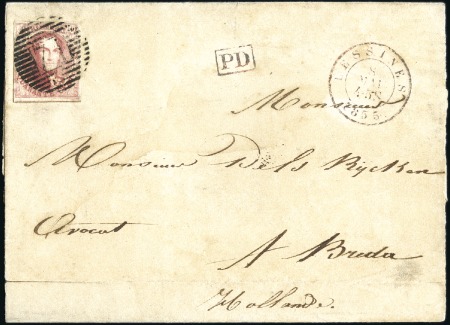 PD
LESSINES
8
1855
Monsieur
Monsieur Dels Rijcken
Avocat
A Breda
Hollande.